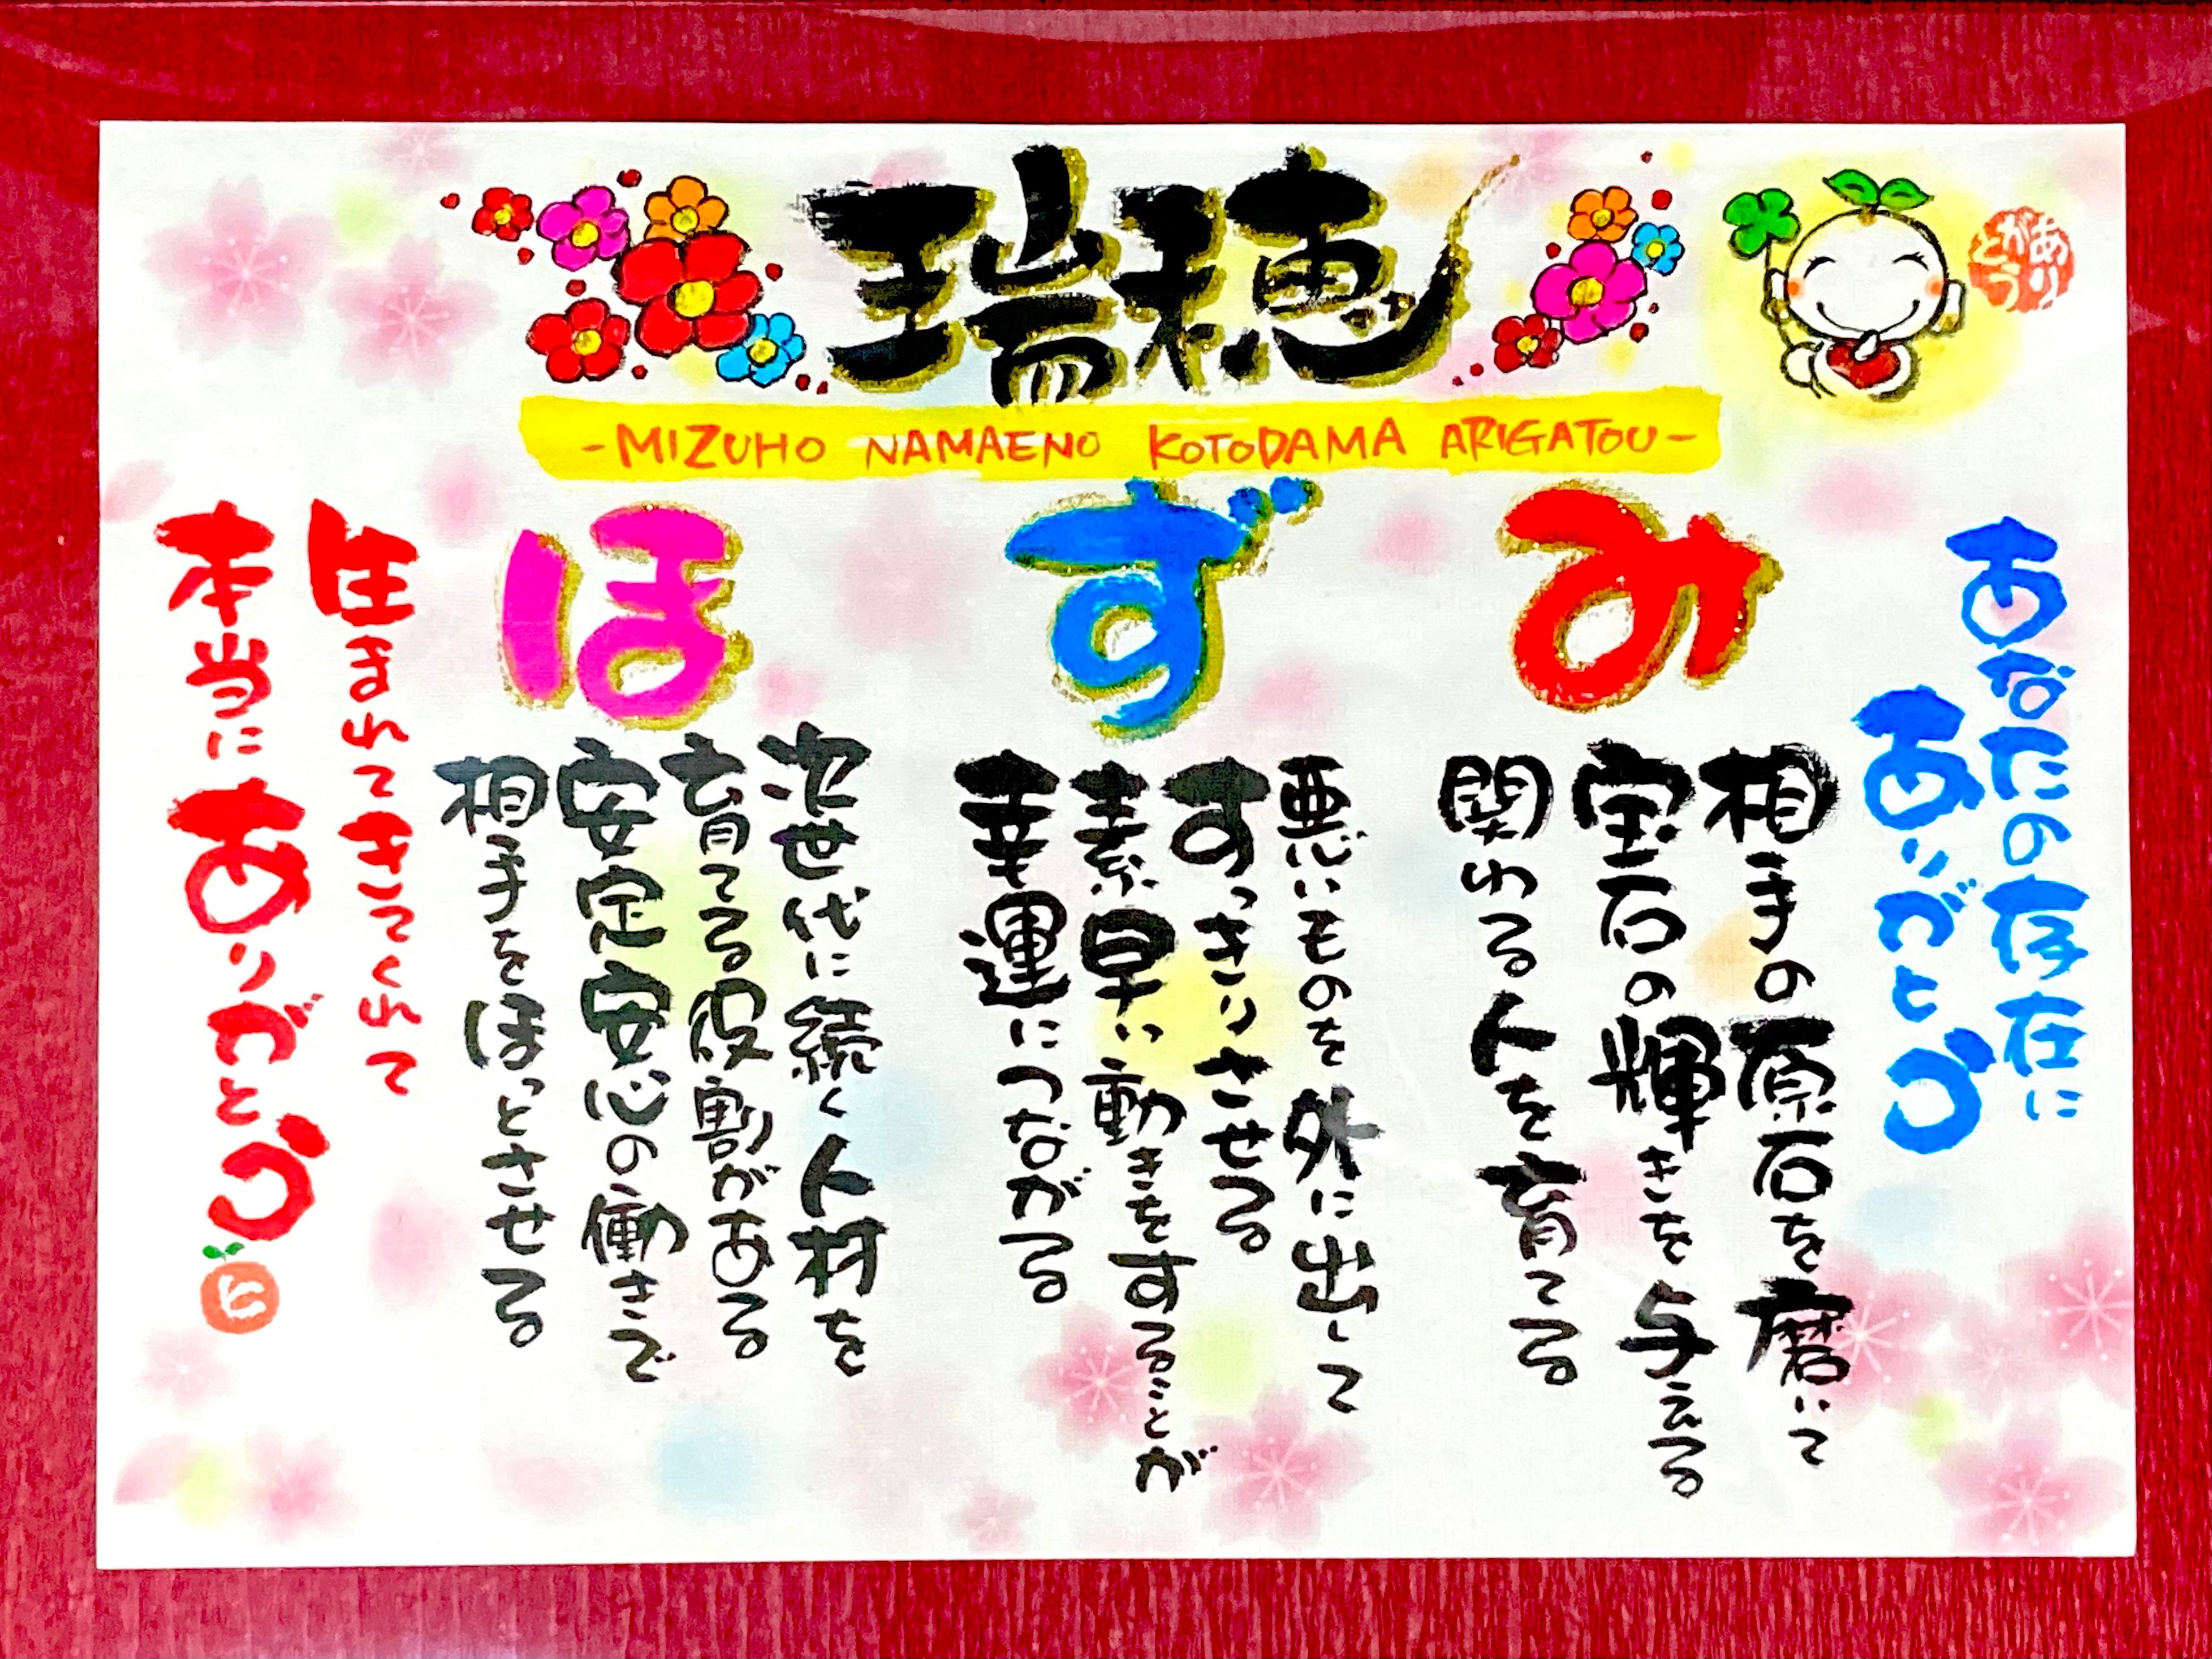 瑞穂
-MIZUHO NAMAENO KOTODAMA ARIGATOU-
ありがとう
あなたの存在に
ありがとう
み
相手の原石を磨いて
宝石の輝きを与える
関わる人を育てる
ず
悪いものを外に出して
すっきりさせる
素早い動きをすることが
幸運につながる
ほ
次世代に続く人材を
育てる役割がある
安定安心の働きで
相手をほっとさせる
生まれてきてくれて
本当にありがとう